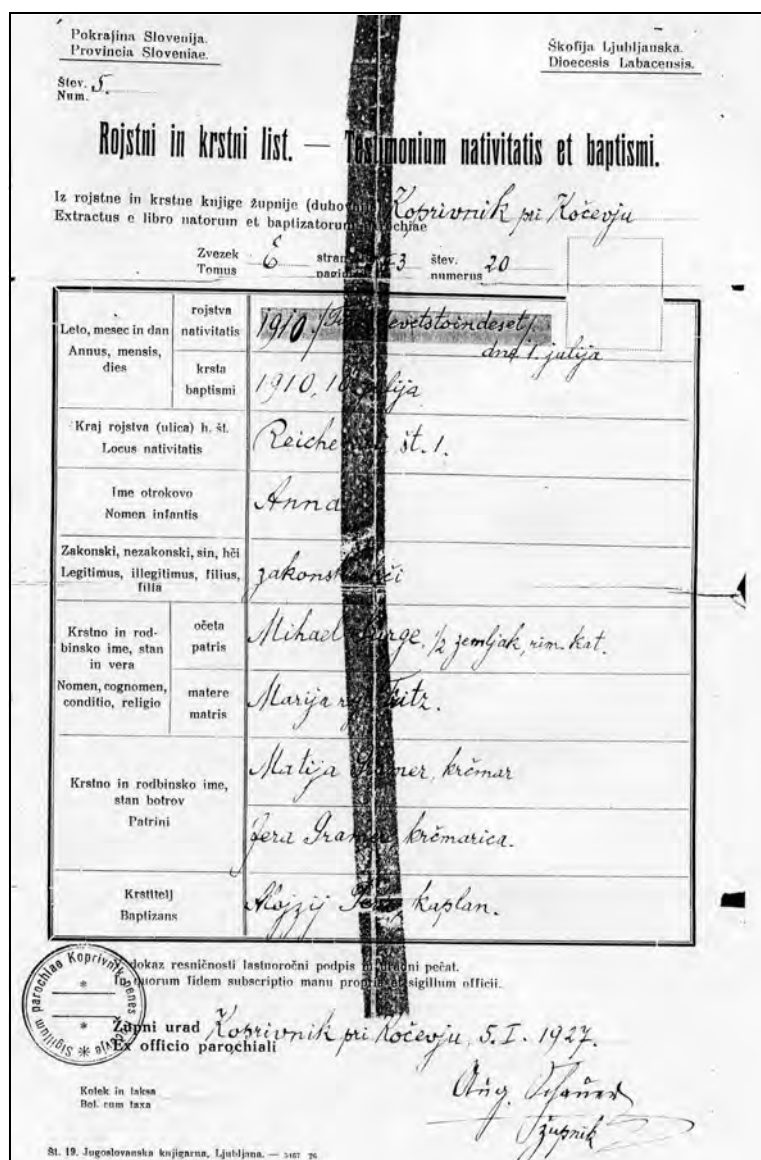 Pokrajina Slovenija.
Provincia Sloveniae.
Škofija Ljubljanska.
Dioecesis Labacensis.
Štev. 5.
Num.
Rojstni in krstni list. — Testimonium nativitatis et baptismi.
Iz rojstne in krstne knjige župnije Koprivnik pri Kočevju
Extractus e libro natorum et baptizatorum parochiae
Zvezek štev. 20
Tomus numerus
Leto, mesec in dan
Annus, mensis,
dies
rojstva
nativitatis
1910
dne 1. julija
krsta
baptismi
1910, julija
Kraj rojstva (ulica) h. št.
Locus nativitatis
št. 1.
Ime otrokovo
Nomen infantis
Anna
Zakonski, nezakonski, sin, hči
Legitimus, illegitimus, filius,
filia
hči
Krstno in rod-
binsko ime, stan
in vera
Nomen, cognomen,
conditio, religio
očeta
patris
Mihael 1/2 zemljak, rim. kat.
matere
matris
Marija
Krstno in rodbinsko ime,
stan botrov
Patrini
Matija krčmar
Jera krčmarica.
Krstitelj
Baptizans
Alojzij kaplan.
dokaz resničnosti lastnoročni podpis in uradni pečat.
In quorum fidem subscriptio manu propria et sigillum officii.
Sigillum parochiae Koprivnik penes
Župni urad Koprivnik pri Kočevju, 5. I. 1927.
Ex officio parochiali
Kolek in taksa
Bol. cum taxa
Aug. Schauer
župnik
Št. 19. Jugoslovanska knjigarna, Ljubljana. —